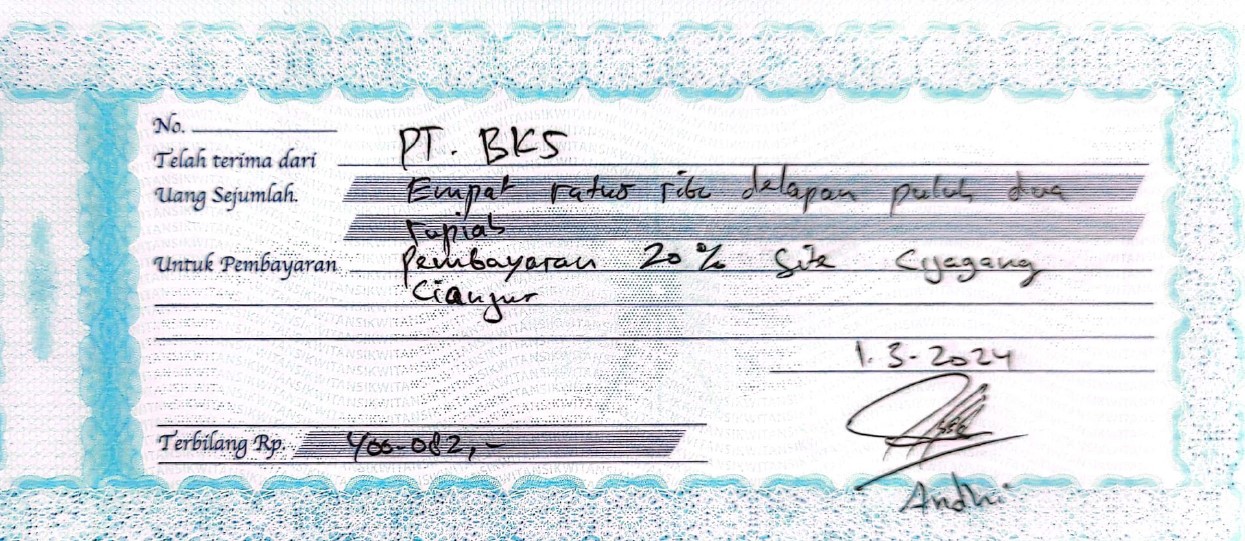 No.
Telah terima dari PT. BKS
Uang Sejumlah. Empat ratus ribu delapan puluh dua
rupiah
Untuk Pembayaran Pembayaran 20% Site Cijagang
Cianjur
1.3-2024
Terbilang Rp. 400.082,-
Andhi